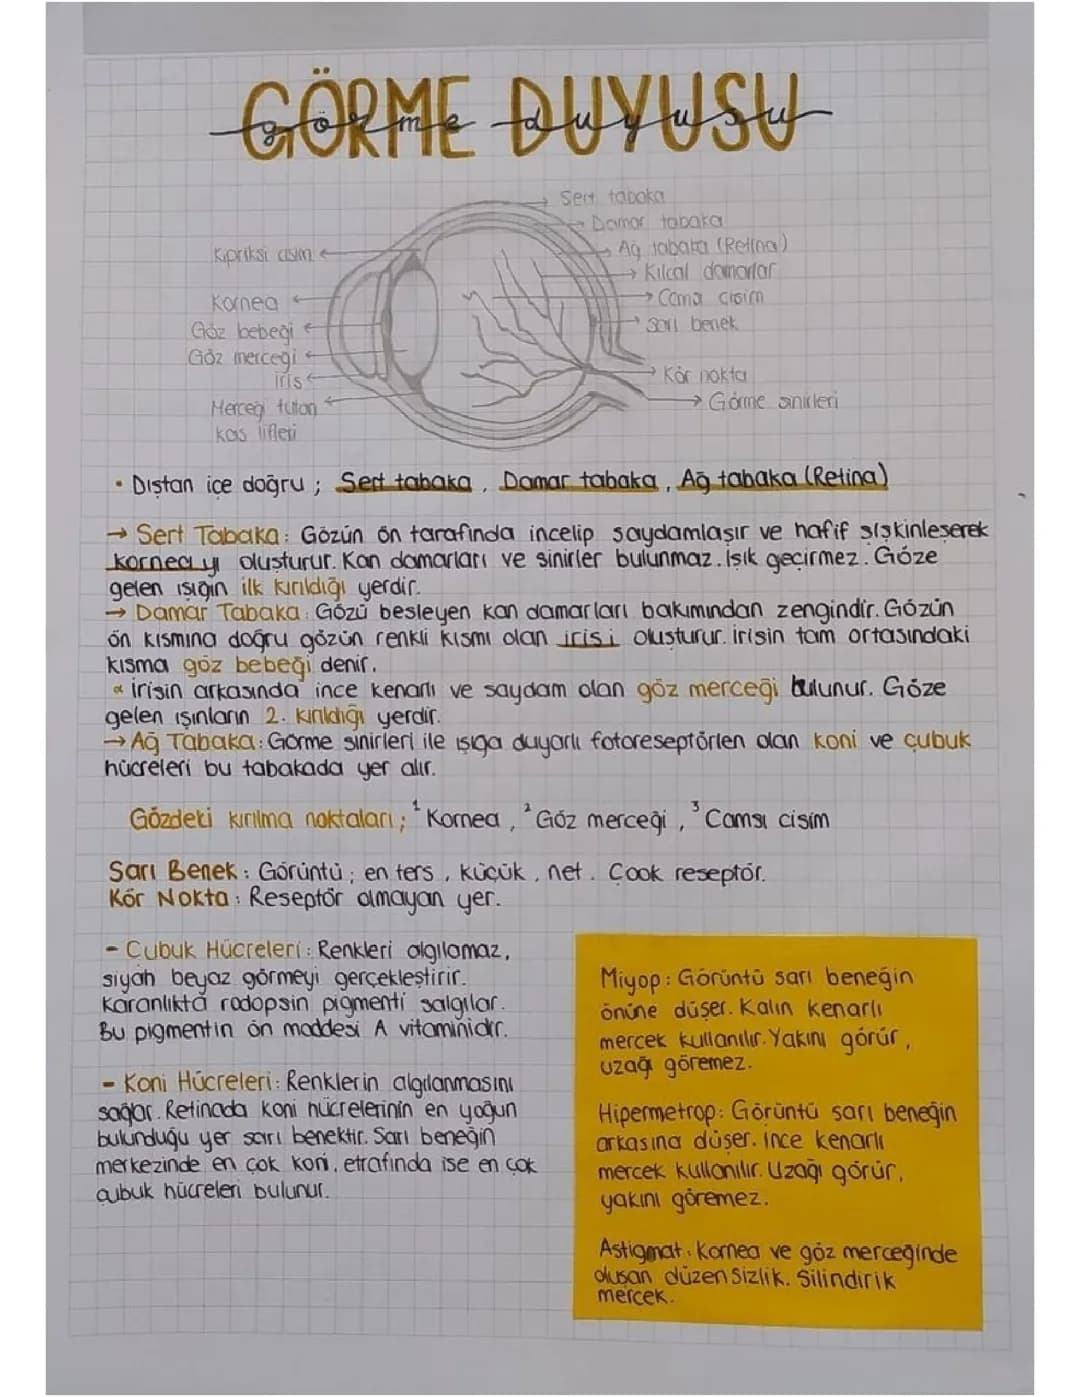 GÖRME DUYUSU
görme duyusu
Sert tabaka
Damar tabaka
Ağ tabaka (Retina)
Kılcal damarlar
Camsı cisim
Sarı benek
Kör nokta
Görme sinirleri
Kipriksi cisim
Kornea
Göz bebeği
Göz merceği
İris
Merceği tutan
kas lifleri
• Dıştan içe doğru ; Sert tabaka , Damar tabaka , Ağ tabaka (Retina)
→ Sert Tabaka : Gözün ön tarafında incelip saydamlaşır ve hafif şişkinleşerek
korneayı oluşturur. Kan damarları ve sinirler bulunmaz. Işık geçirmez. Göze
gelen ışığın ilk kırıldığı yerdir.
→ Damar Tabaka : Gözü besleyen kan damarları bakımından zengindir. Gözün
ön kısmına doğru gözün renkli kısmı olan irisi oluşturur. irisin tam ortasındaki
kısma göz bebeği denir.
∝ irisin arkasında ince kenarlı ve saydam olan göz merceği bulunur. Göze
gelen ışınların 2. kırıldığı yerdir.
→ Ağ Tabaka : Görme sinirleri ile ışığa duyarlı fotoreseptörlen olan koni ve çubuk
hücreleri bu tabakada yer alır.
Gözdeki kırılma noktaları ; ¹ Kornea , ² Göz merceği , ³ Camsı cisim
Sarı Benek : Görüntü ; en ters , küçük , net . Çook reseptör.
Kör Nokta : Reseptör olmayan yer.
- Çubuk Hücreleri : Renkleri algılamaz,
siyah beyaz görmeyi gerçekleştirir.
Karanlıkta rodopsin pigmenti salgılar.
Bu pigmentin ön maddesi A vitaminidir.
- Koni Hücreleri : Renklerin algılanmasını
sağlar. Retinada koni hücrelerinin en yoğun
bulunduğu yer sarı benektir. Sarı beneğin
merkezinde en çok koni, etrafında ise en çok
çubuk hücreleri bulunur.
Miyop : Görüntü sarı beneğin
önüne düşer. Kalın kenarlı
mercek kullanılır. Yakını görür,
uzağı göremez.
Hipermetrop : Görüntü sarı beneğin
arkasına düşer. ince kenarlı
mercek kullanılır. Uzağı görür,
yakını göremez.
Astigmat : Kornea ve göz merceğinde
oluşan düzensizlik. Silindirik
mercek.